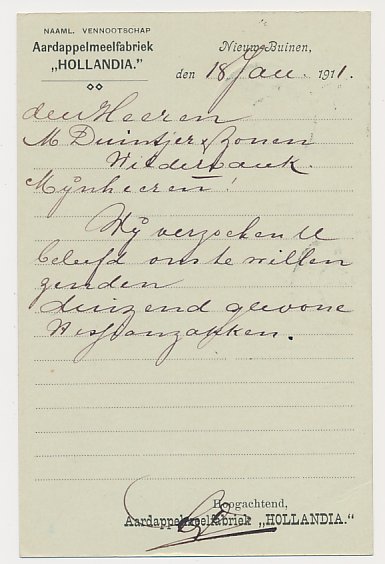 NAAML. VENNOOTSCHAP
Aardappelmeelfabriek
„HOLLANDIA."
Nieuw-Buinen,
den 18 Jan. 1911.
den Heeren
M Duintjer & Zonen
Wildervank
Mijnheeren!
Wij verzoeken U
beleefd ons te willen
zenden
duizend gewone
Hessianzakken.
Hoogachtend,
Aardappelmeelfabriek „HOLLANDIA."